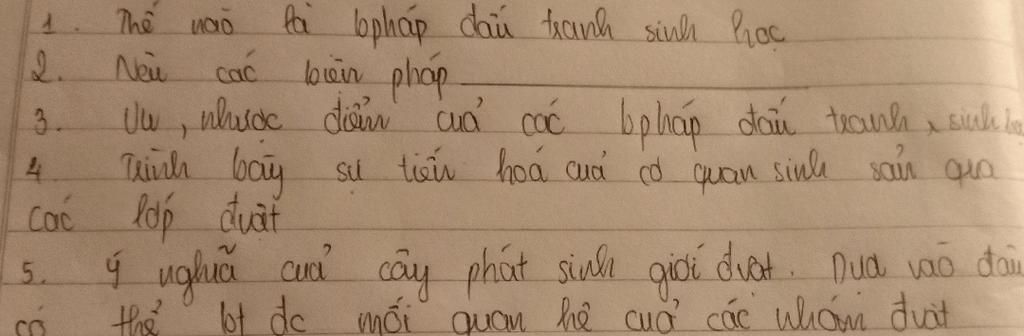 1. Thế nào là bpháp đấu tranh sinh học
2. Nêu các biện pháp
3. Ưu, nhược điểm của các bpháp đấu tranh sinh học
4 Trình bày sự tiến hoá của cơ quan sinh sản qua
các lớp đvật
5. Ý nghĩa của cây phát sinh giới đvật. Dựa vào đâu
có thể bt đc mối quan hệ của các nhóm đvật